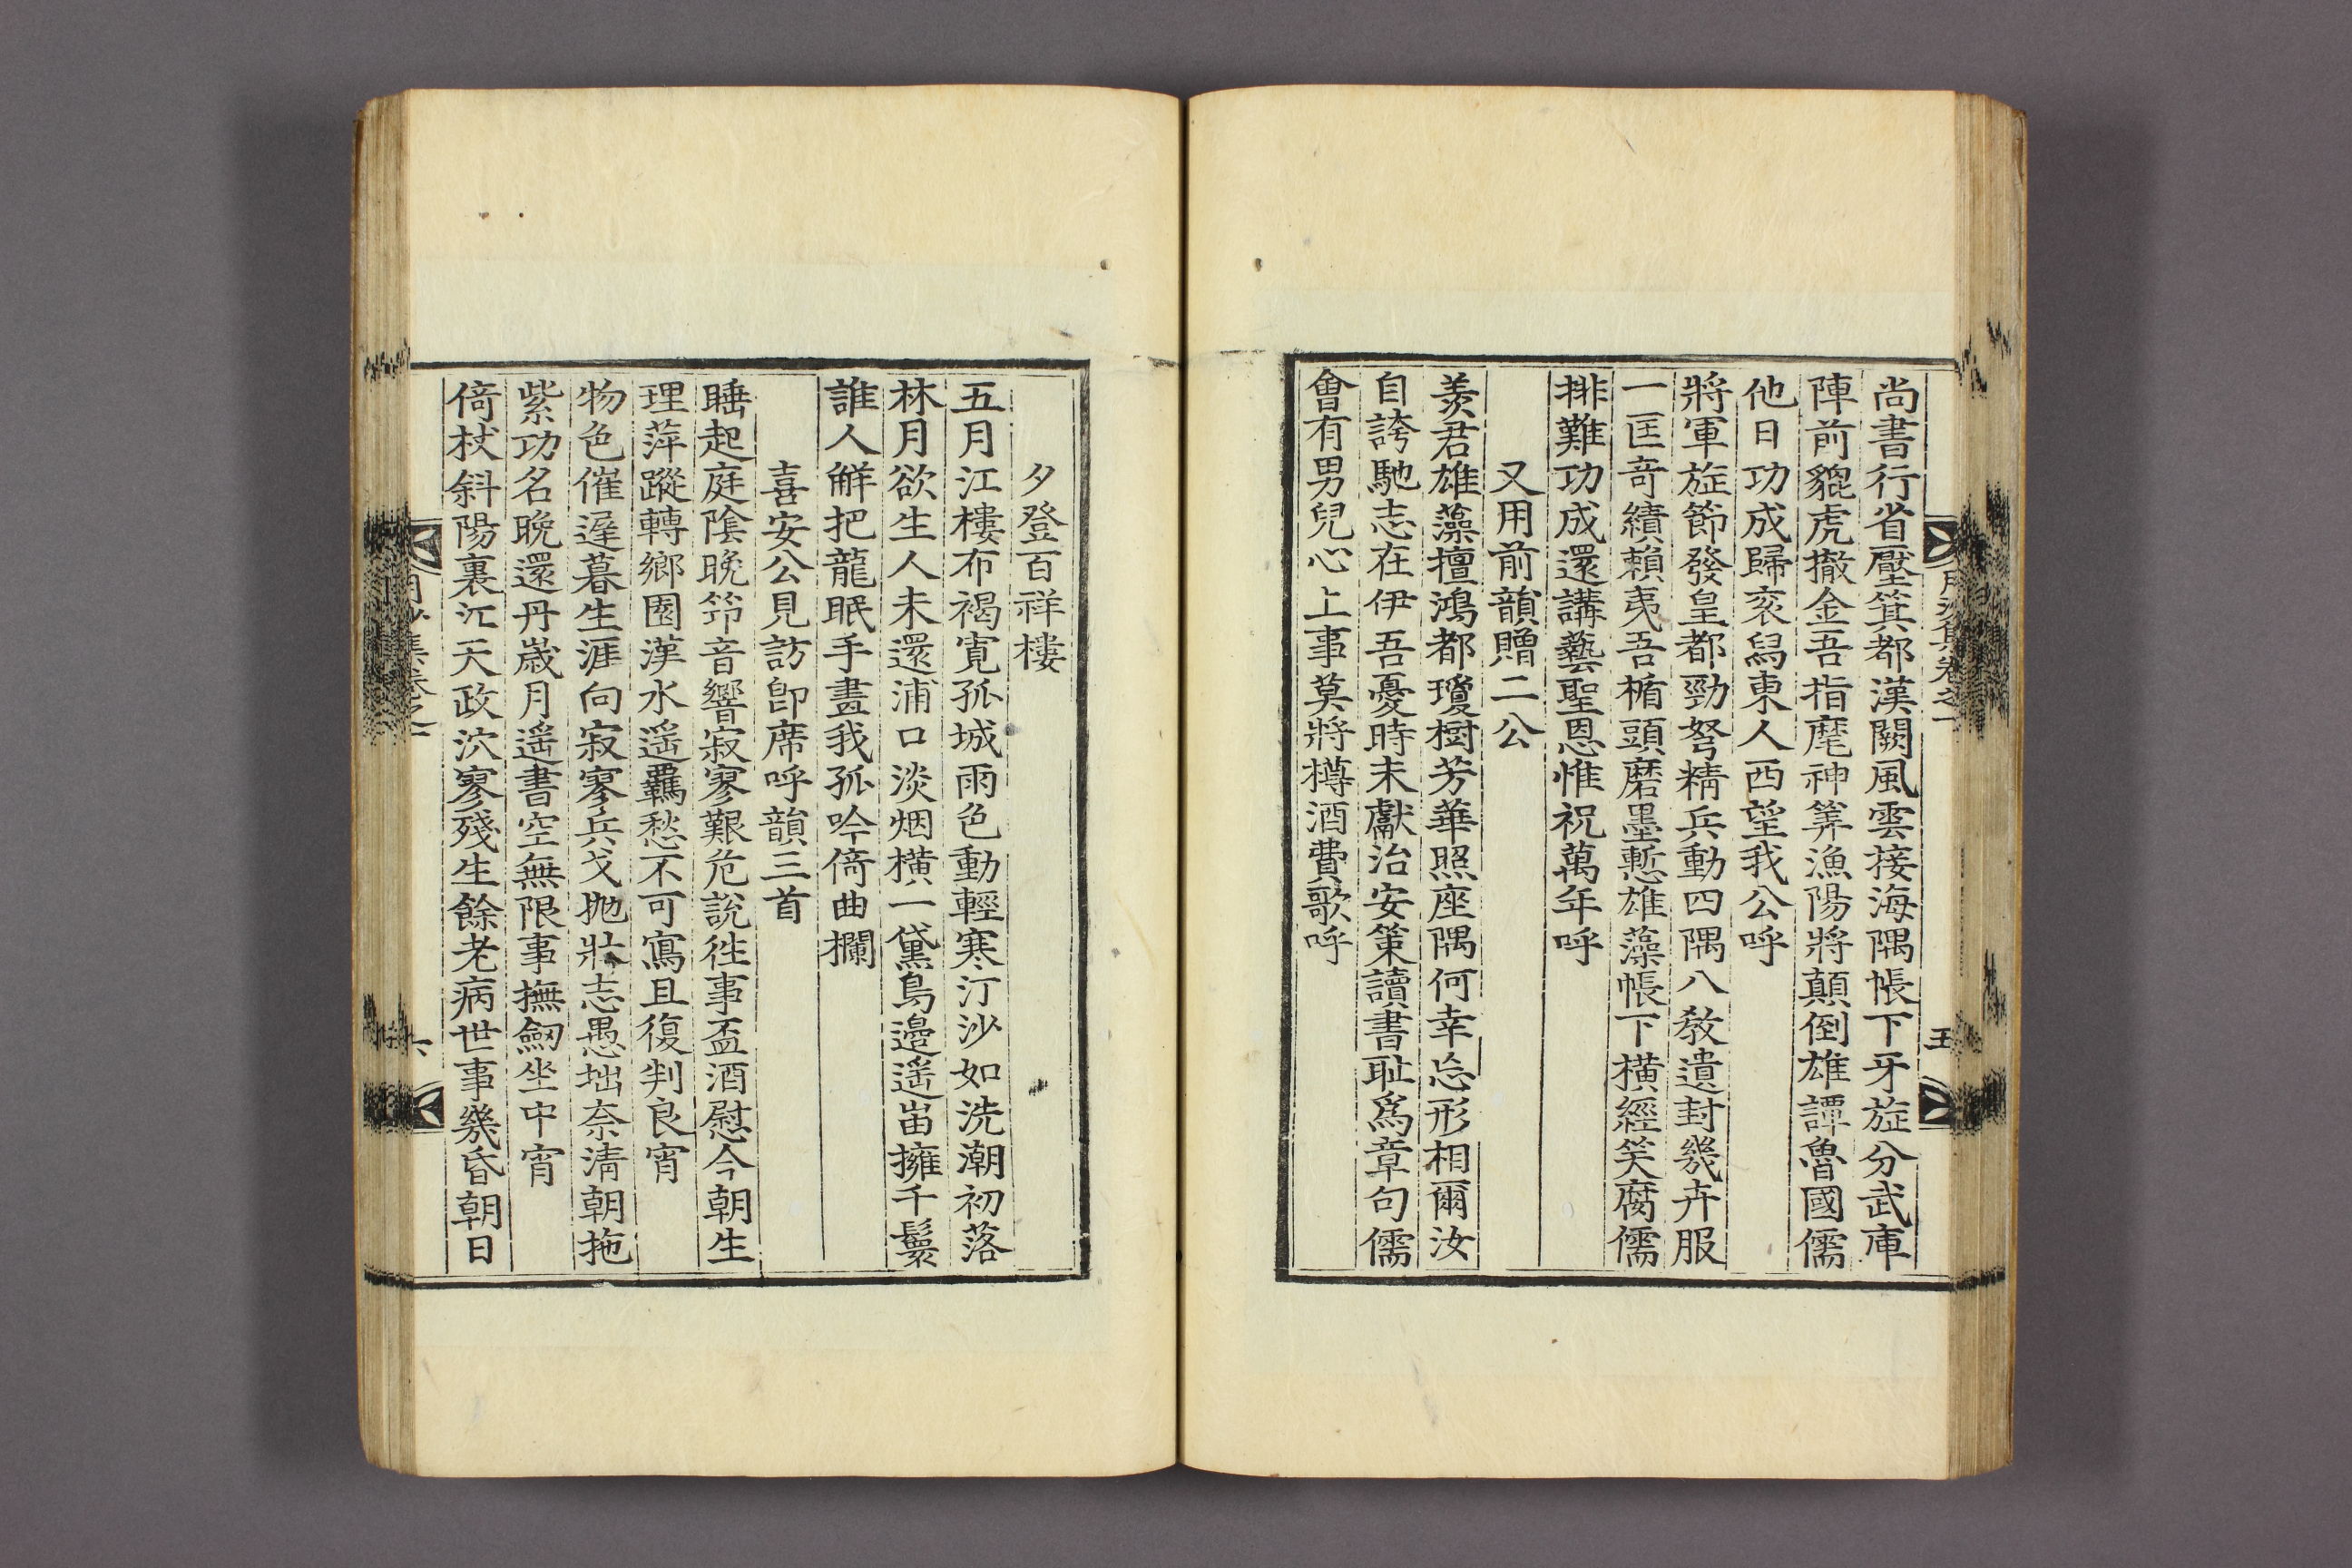 尚書行省壓箕都漢闕風雲接海隅帳下牙旌分武庫
陣前貔虎撤金吾指麾神筭漁陽將顛倒雄譚魯國儒
他日功成歸衮舄東人西望我公呼
將軍旌節發皇都勁弩精兵動四隅八敎遺封幾卉服
一匡奇績賴夷吾楯頭磨墨慙雄藻帳下橫經笑腐儒
排難功成還講藝聖恩惟祝萬年呼
又用前韻贈二公
羨君雄藻擅鴻都瓊樹芳華照座隅何幸忘形相爾汝
自誇馳志在伊吾憂時未獻治安策讀書耻爲章句儒
會有男兒心上事莫將樽酒費歌呼
五
夕登百祥樓
五月江樓布褐寛孤城雨色動輕寒汀沙如洗潮初落
林月欲生人未還浦口淡烟橫一黛鳥邊遥岫擁千鬟
誰人解把龍眠手畫我孤吟倚曲欄
喜安公見訪卽席呼韻三首
睡起庭陰晩笻音響寂寥艱危說徃事盃酒慰今朝生
理萍蹤轉鄉園漢水遥羈愁不可寫且復判良宵
物色催遲暮生涯向寂寥兵戈抛壯志愚拙奈淸朝拖
紫功名晩還丹歲月遥書空無限事撫劒坐中宵
倚杖斜陽裏江天政泬寥殘生餘老病世事幾昏朝日
六